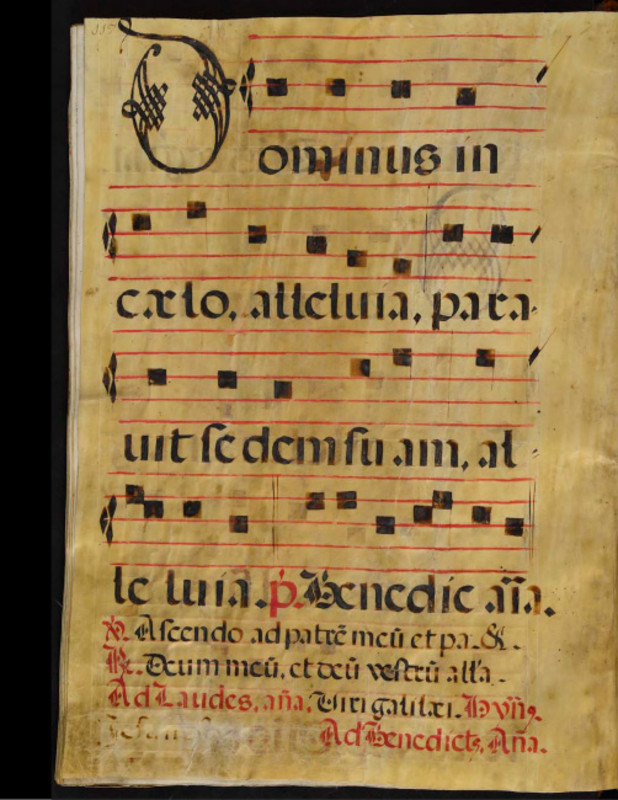 Dominus in
cælo, alleluia, para
uit sedem suam, al
leluia. p. Benedic aīa.
V. Ascendo ad patrē meū et pa. &.
R. Deum meū, et deū vestrū alľa.
Ad Laudes, aña, Viri galilæi. Hyñ9.
Ad Benedict9, Aña.